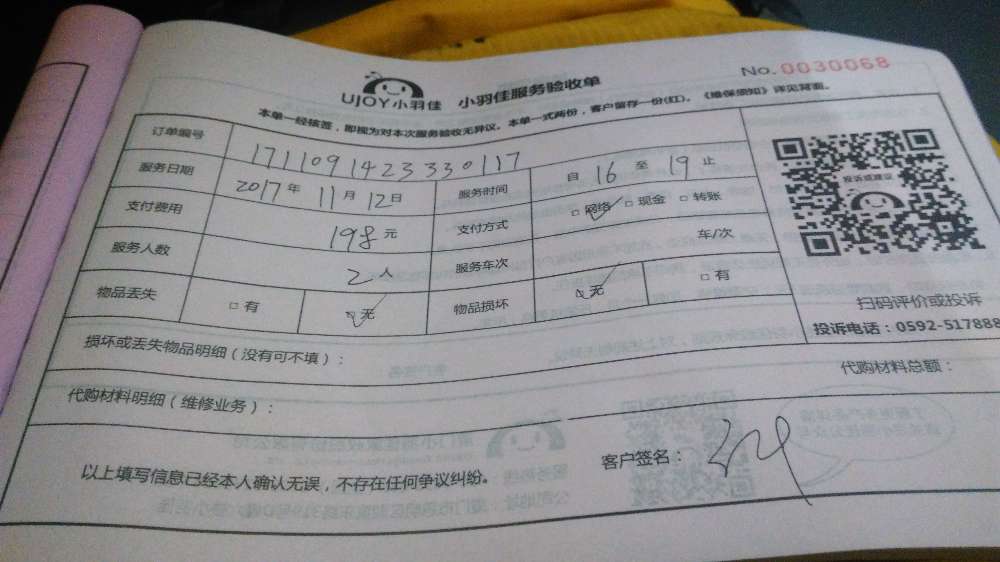 UJOY小羽佳 小羽佳服务验收单 No.0030068
本单一经核签，即视为对本次服务验收无异议。本单一式两份，客户留存一份(红)。《维保须知》详见背面。
订单编号 17110914233330117
服务日期 2017年 11月 12日 服务时间 自 16 至 19 止
支付费用 198元 支付方式 □网络 □现金 □转账
服务人数 2人 服务车次 车/次
物品丢失 □有 □无 物品损坏 □无 □有
投诉或建议
扫码评价或投诉
投诉电话：0592-517888
损坏或丢失物品明细（没有可不填）：
代购材料明细（维修业务）： 代购材料总额：
以上填写信息已经本人确认无误，不存在任何争议纠纷。 客户签名：